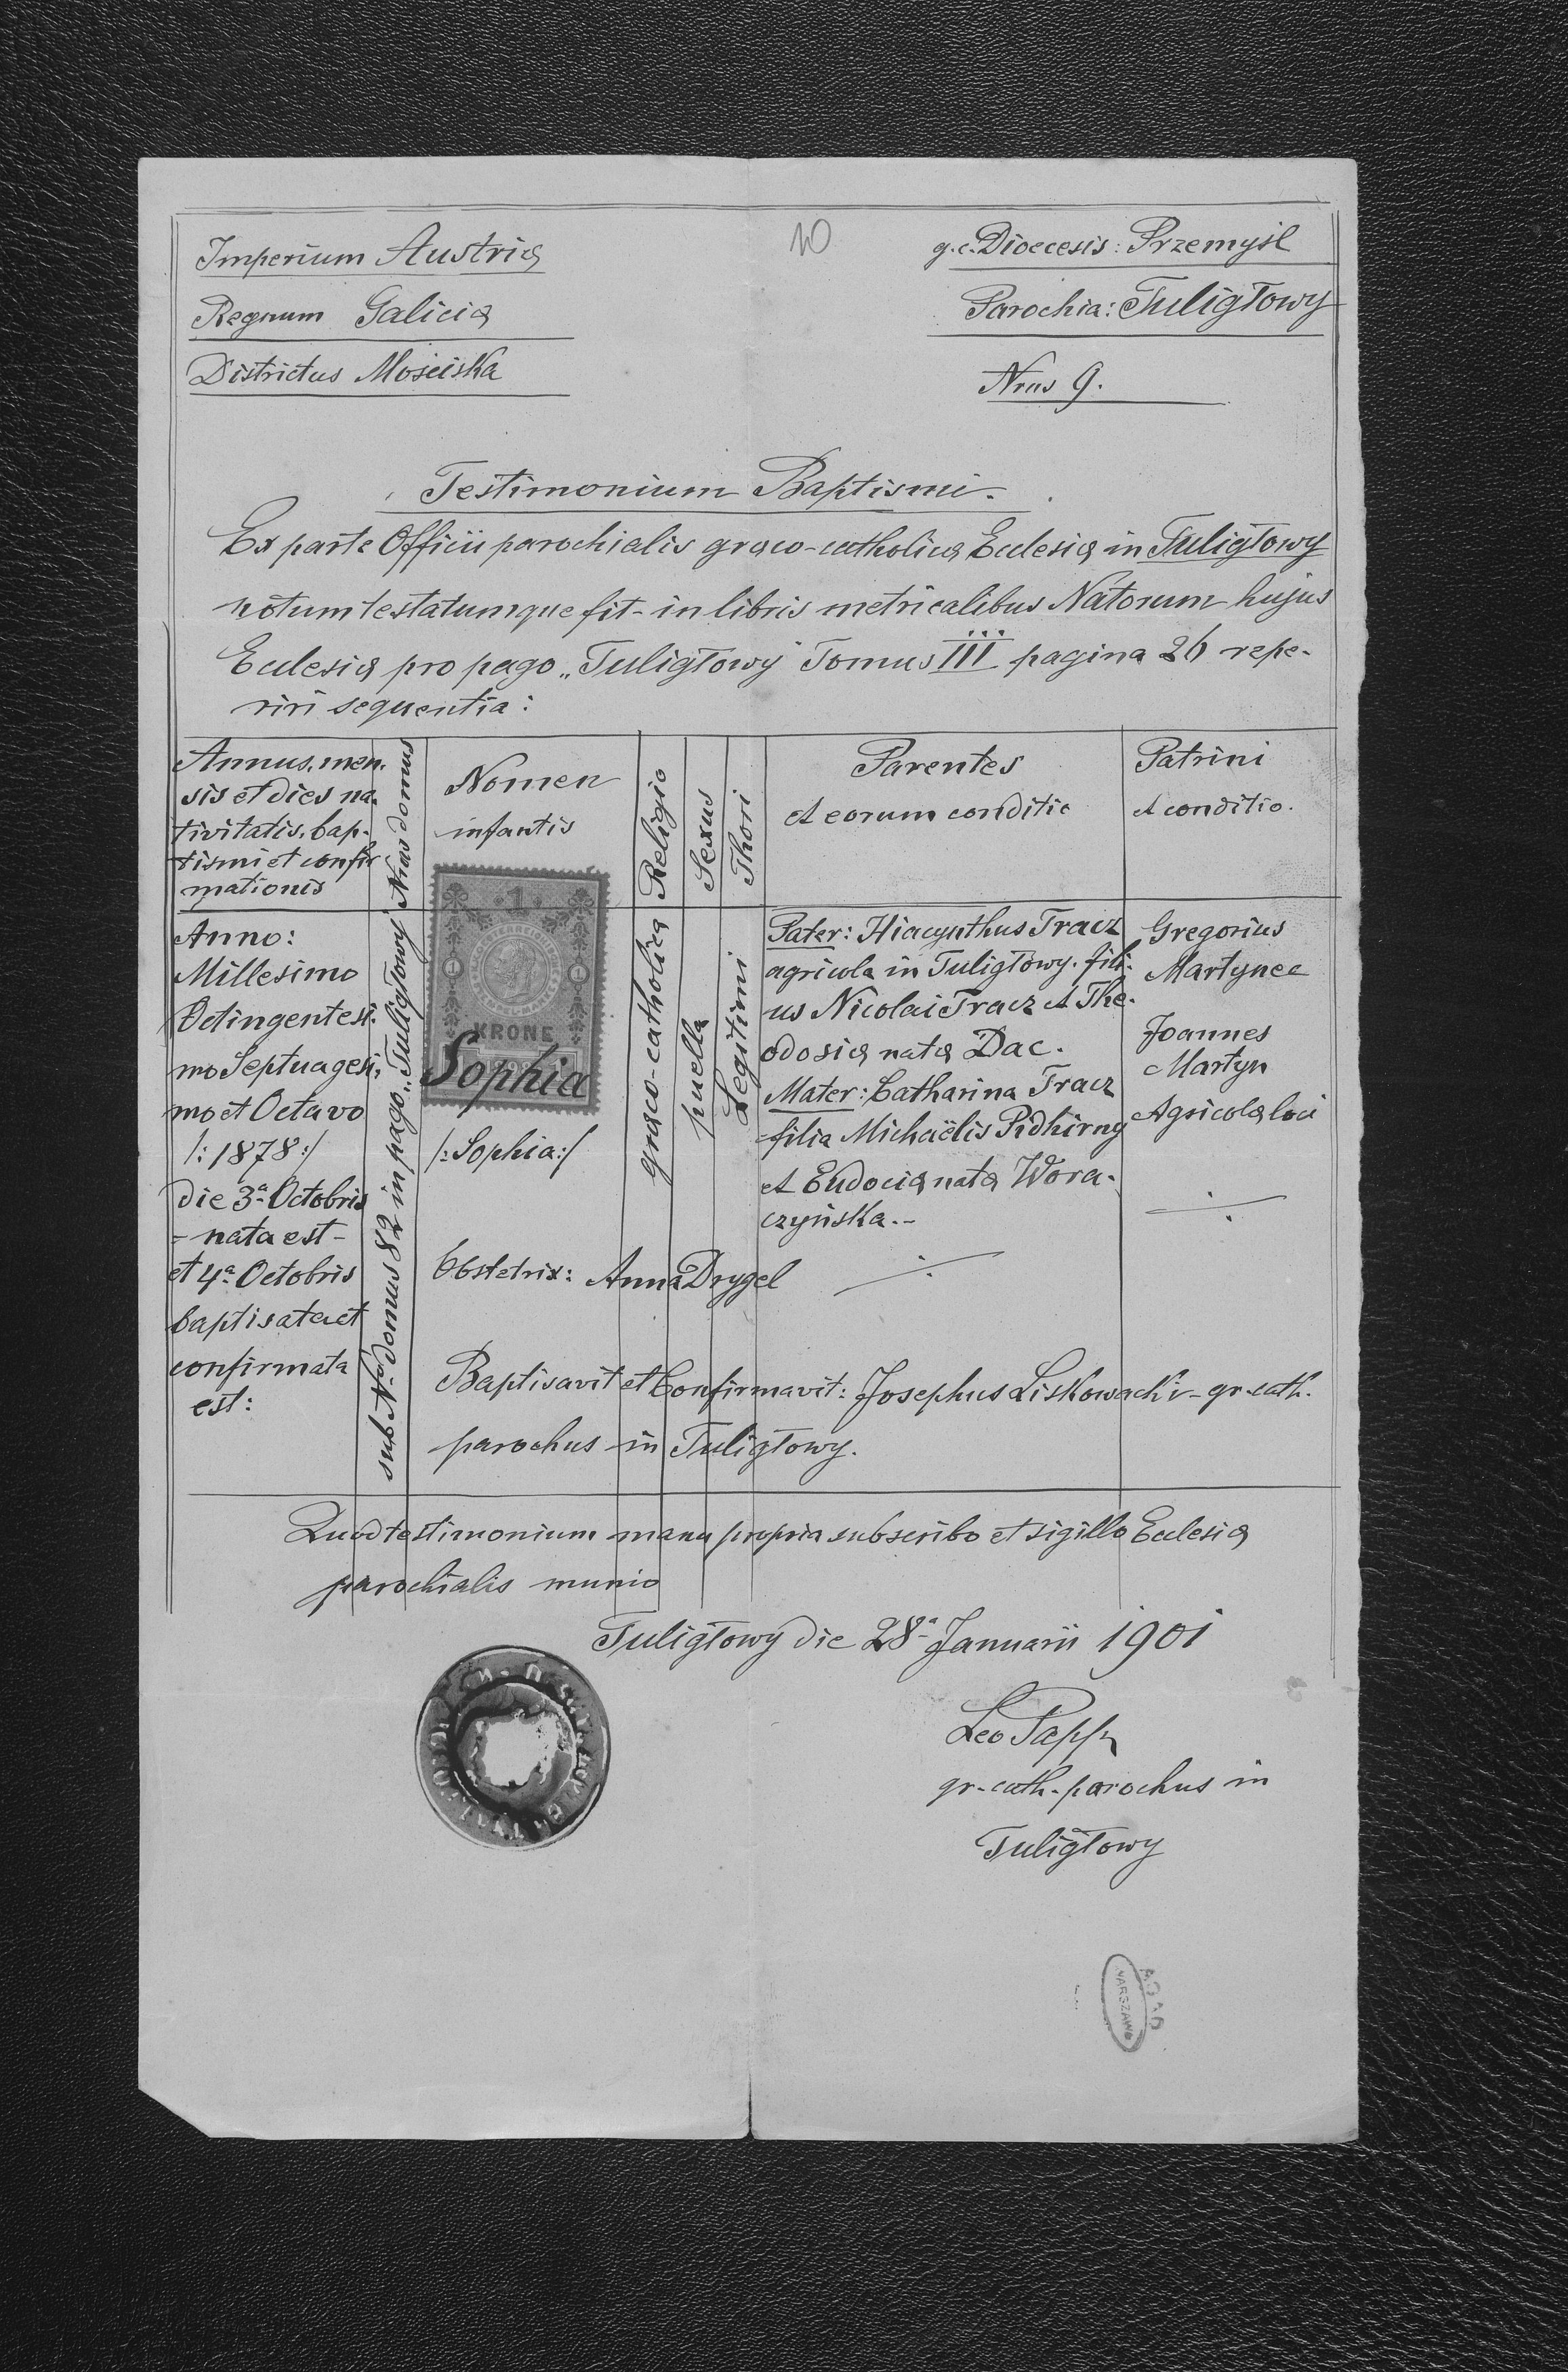 Imperium Austriæ
10
g.c. Dioecesis: Przemyśl
Regnum Galiciæ
Parochia: Tuligłowy
Districtus Mościska
Nrus 9.
Testimonium Baptismi.
Ex parte Officii parochialis græco-catholicæ Ecclesiæ in Tuligłowy
notum testatumque fit - in libris metricalibus Natorum hujus
Ecclesiæ pro pago „Tuligłowy" Tomus III pagina 26 repe-
riri sequentia:
Annus, men-
sis et dies na-
tivitatis, bap-
tismi et confir
mationis
Nrus domus
Nomen
infantis
Religio
Sexus
Thori
Parentes
et eorum conditio
Patrini
et conditio.
Anno:
Millesimo
Octingentesi-
mo Septuagesi-
mo et Octavo
/: 1878 :/
die 3a Octobris
- nata est -
et 4a Octobris
baptisata et
confirmata
est:
sub No domus 82 in pago „Tuligłowy"
1
KRONE
Sophia
/: Sophia :/
græco-catholica
puella
Legitimi
Pater: Hiacynthus Tracz
agricola in Tuligłowy. fili-
us Nicolai Tracz et The-
odosiæ natæ Dac.
Mater: Catharina Tracz
filia Michaëlis Pidhirny
et Eudociæ natæ Wora-
czyńska.-
Gregorius
Martynec
Joannes
Martyn
Agricolæ loci
Obstetrix: Anna Drygel
Baptisavit et Confirmavit: Josephus Liskowacki - gr-cath.
parochus in Tuligłowy.
Quod testimonium manu propria subscribo et sigillo Ecclesiæ
parochialis munio
Tuligłowy die 28a Januarii 1901
Leo Papp
gr-cath-parochus in
Tuligłowy
AGAD
WARSZAWA